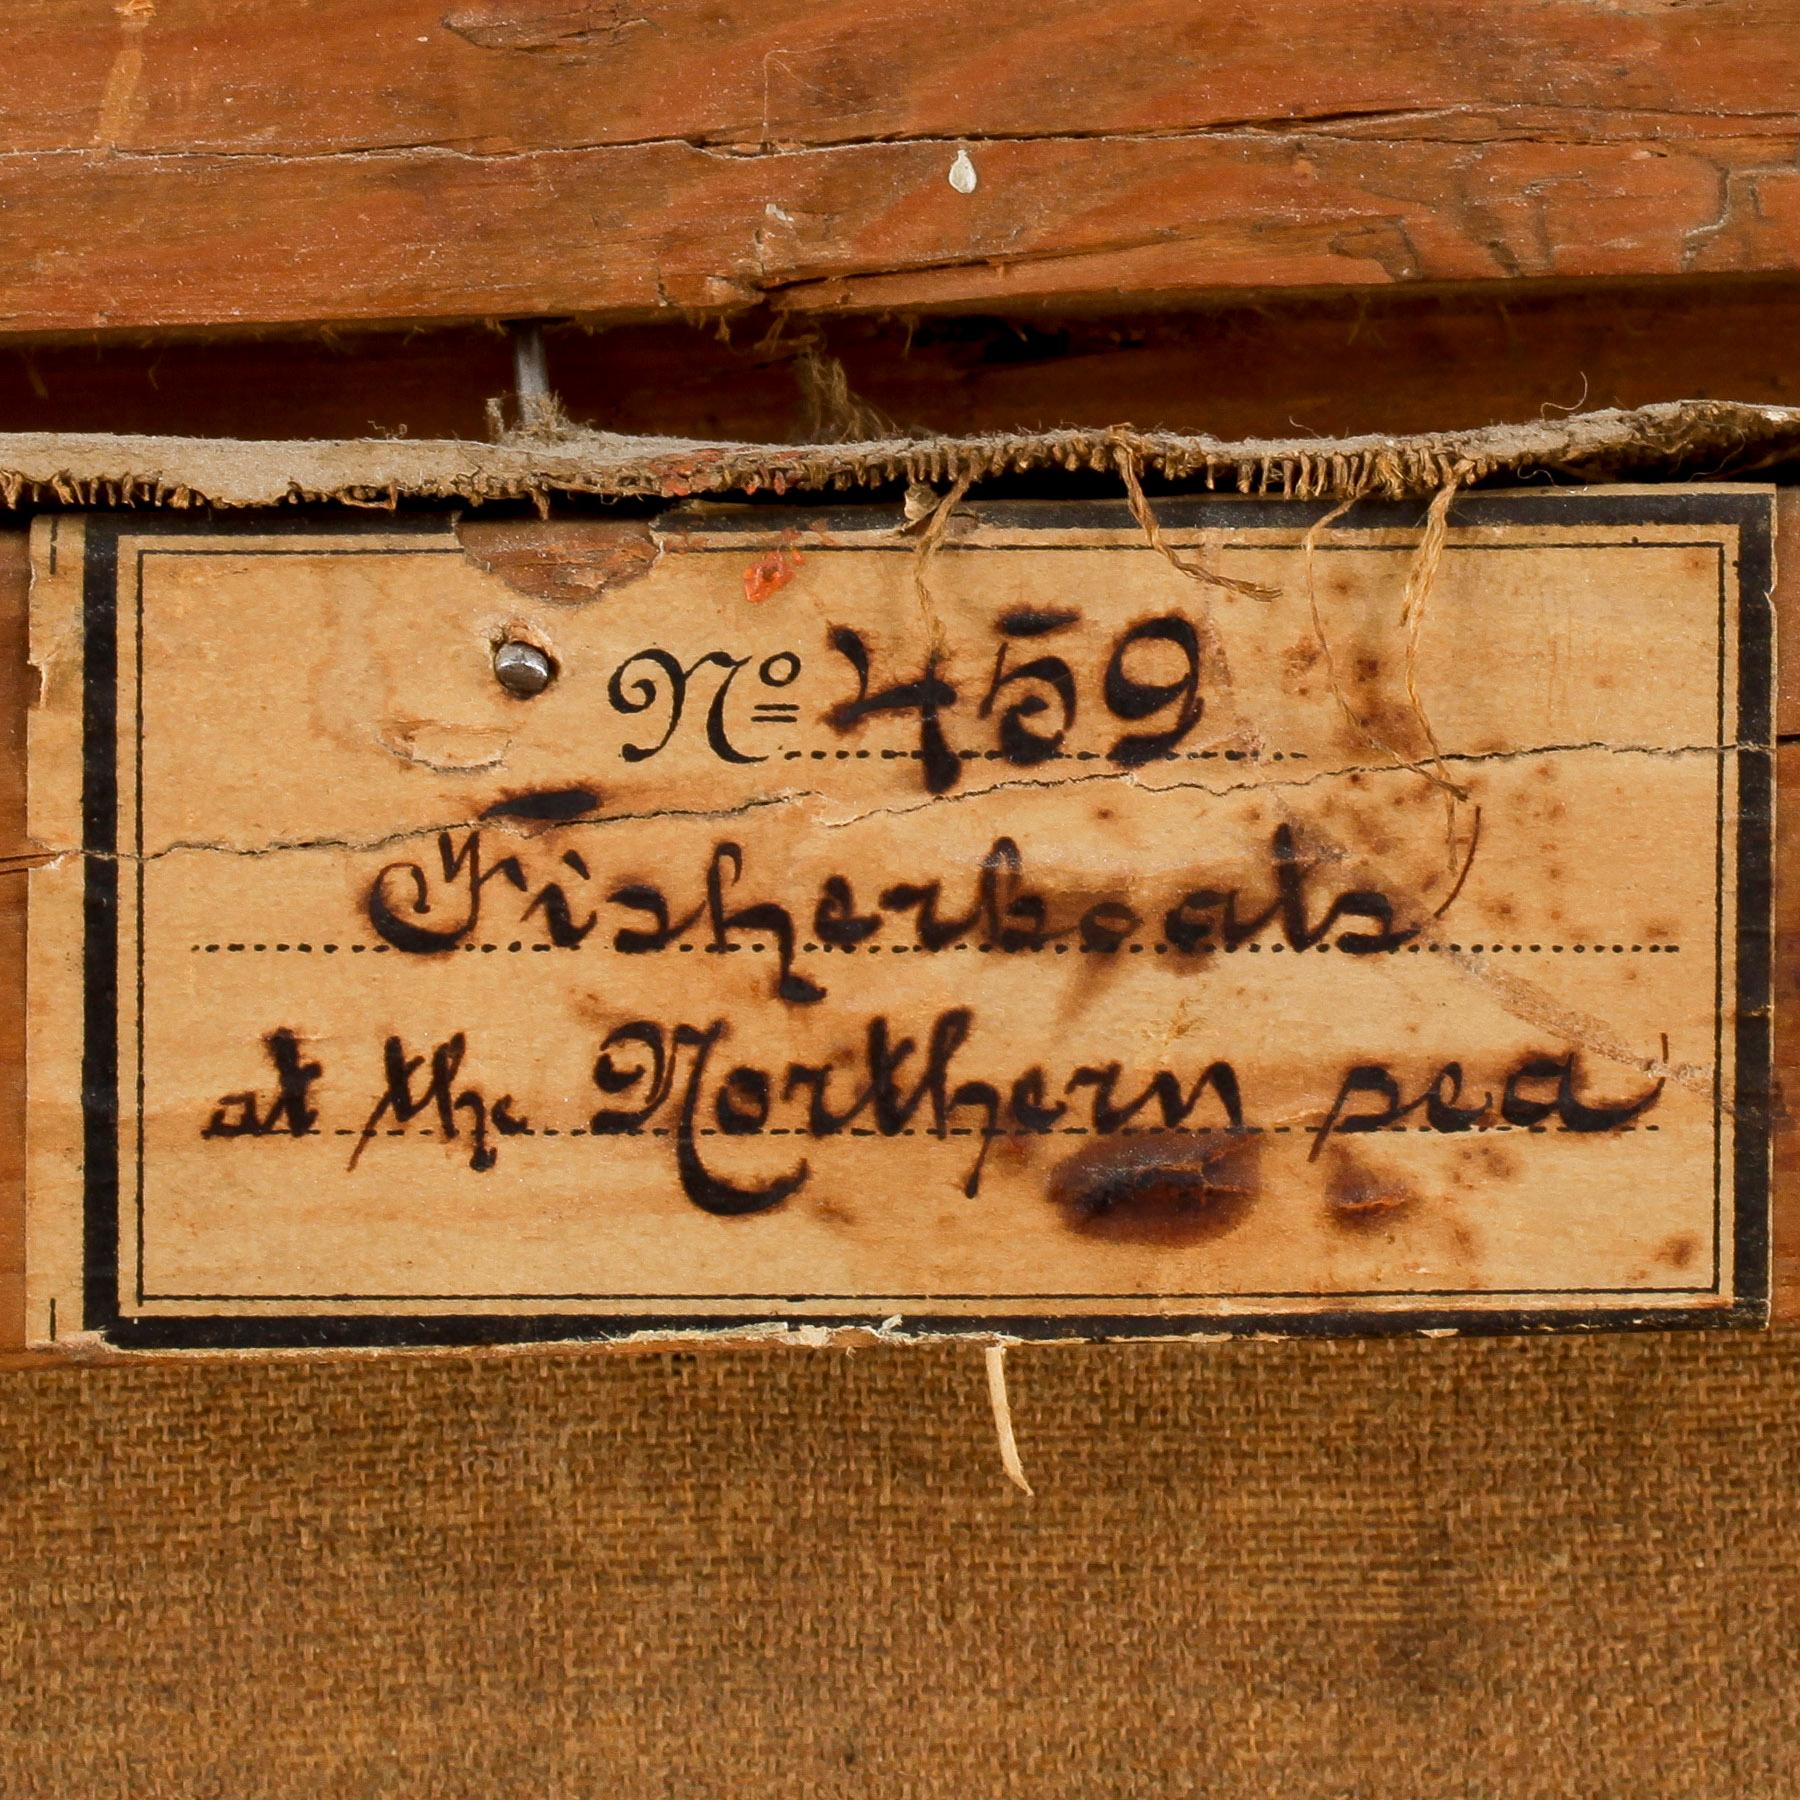 Nº 459
Fisherboats
at the Northern sea